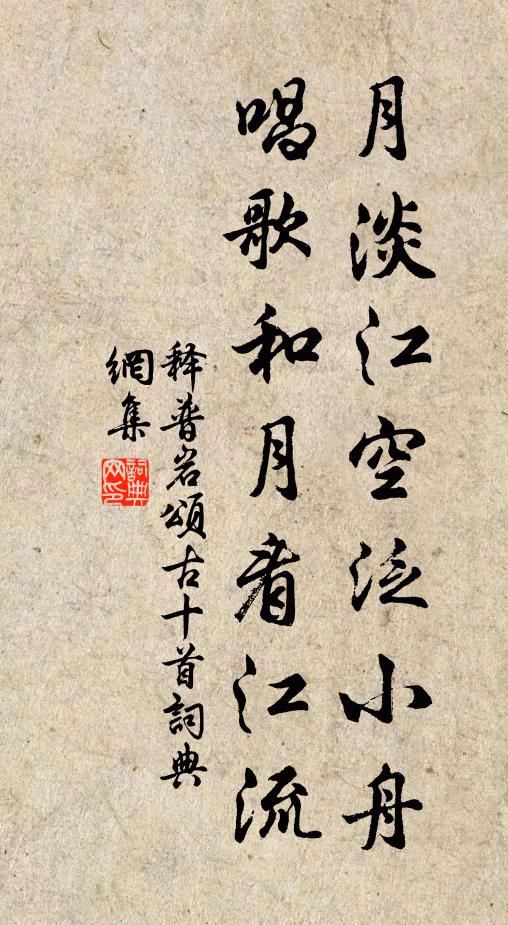 月淡江空泛小舟
唱歌和月看江流
释普岩頌古十首詞典
網集
詞典
网印